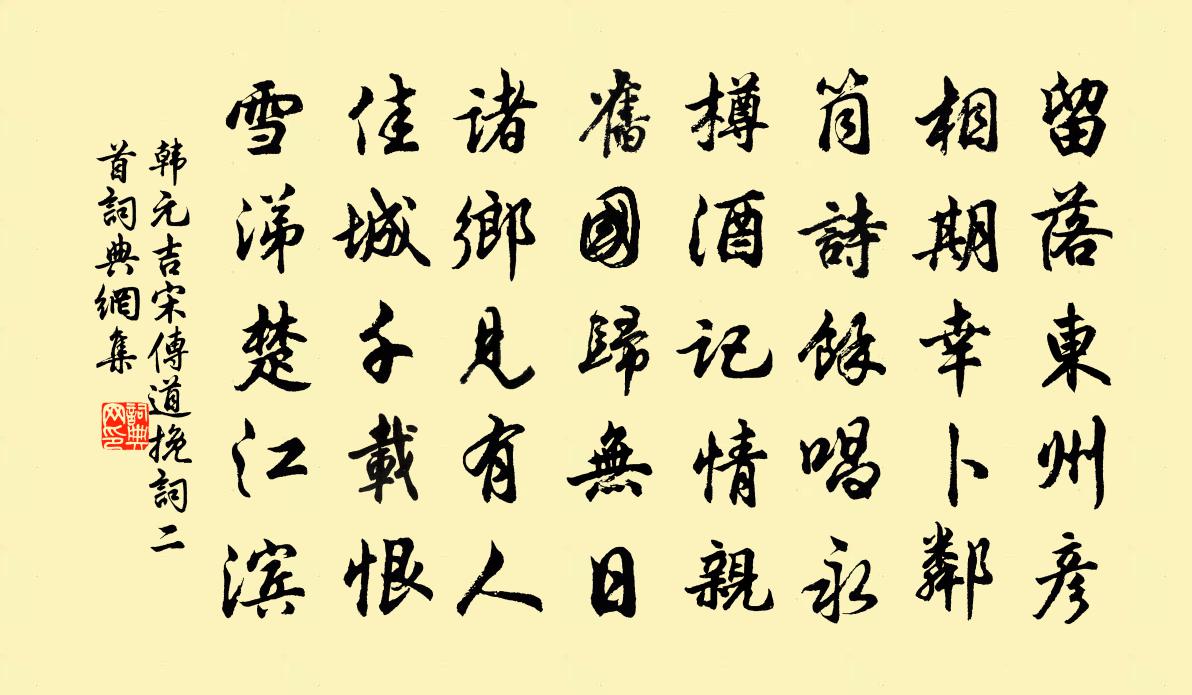 留落東州彦
相期幸卜鄰
筒詩餘唱永
樽酒記情親
舊國歸無日
诸鄉見有人
佳城千載恨
雪涕楚江滨
韩元吉宋傳道挽詞二
首詞典網集
詞典
网印